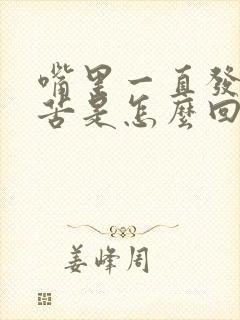 嘴里一直發
苦是怎麼回
姜峰周